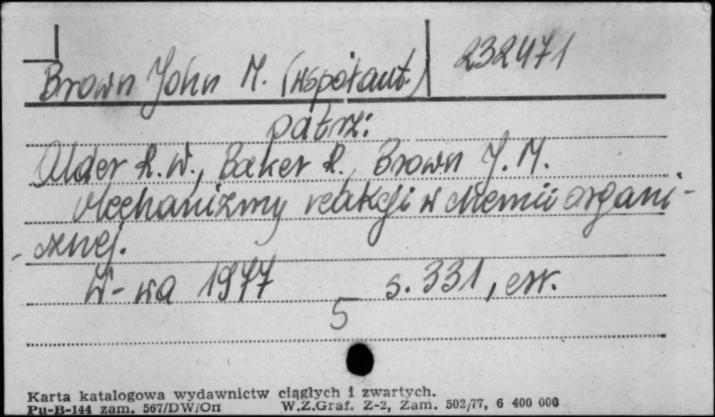 Brown John M. (współaut.) 232471
patrz:
Alder R.W., Baker R., Brown J.M.
Mechanizmy reakcji w chemii organi-
-cznej.
W-wa 1977 s. 331, err.
5
Karta katalogowa wydawnictw ciągłych i zwartych.
Pu-B-144 zam. 567/DW/On W.Z.Graf. Z-2, Zam. 502/77, 6 400 000